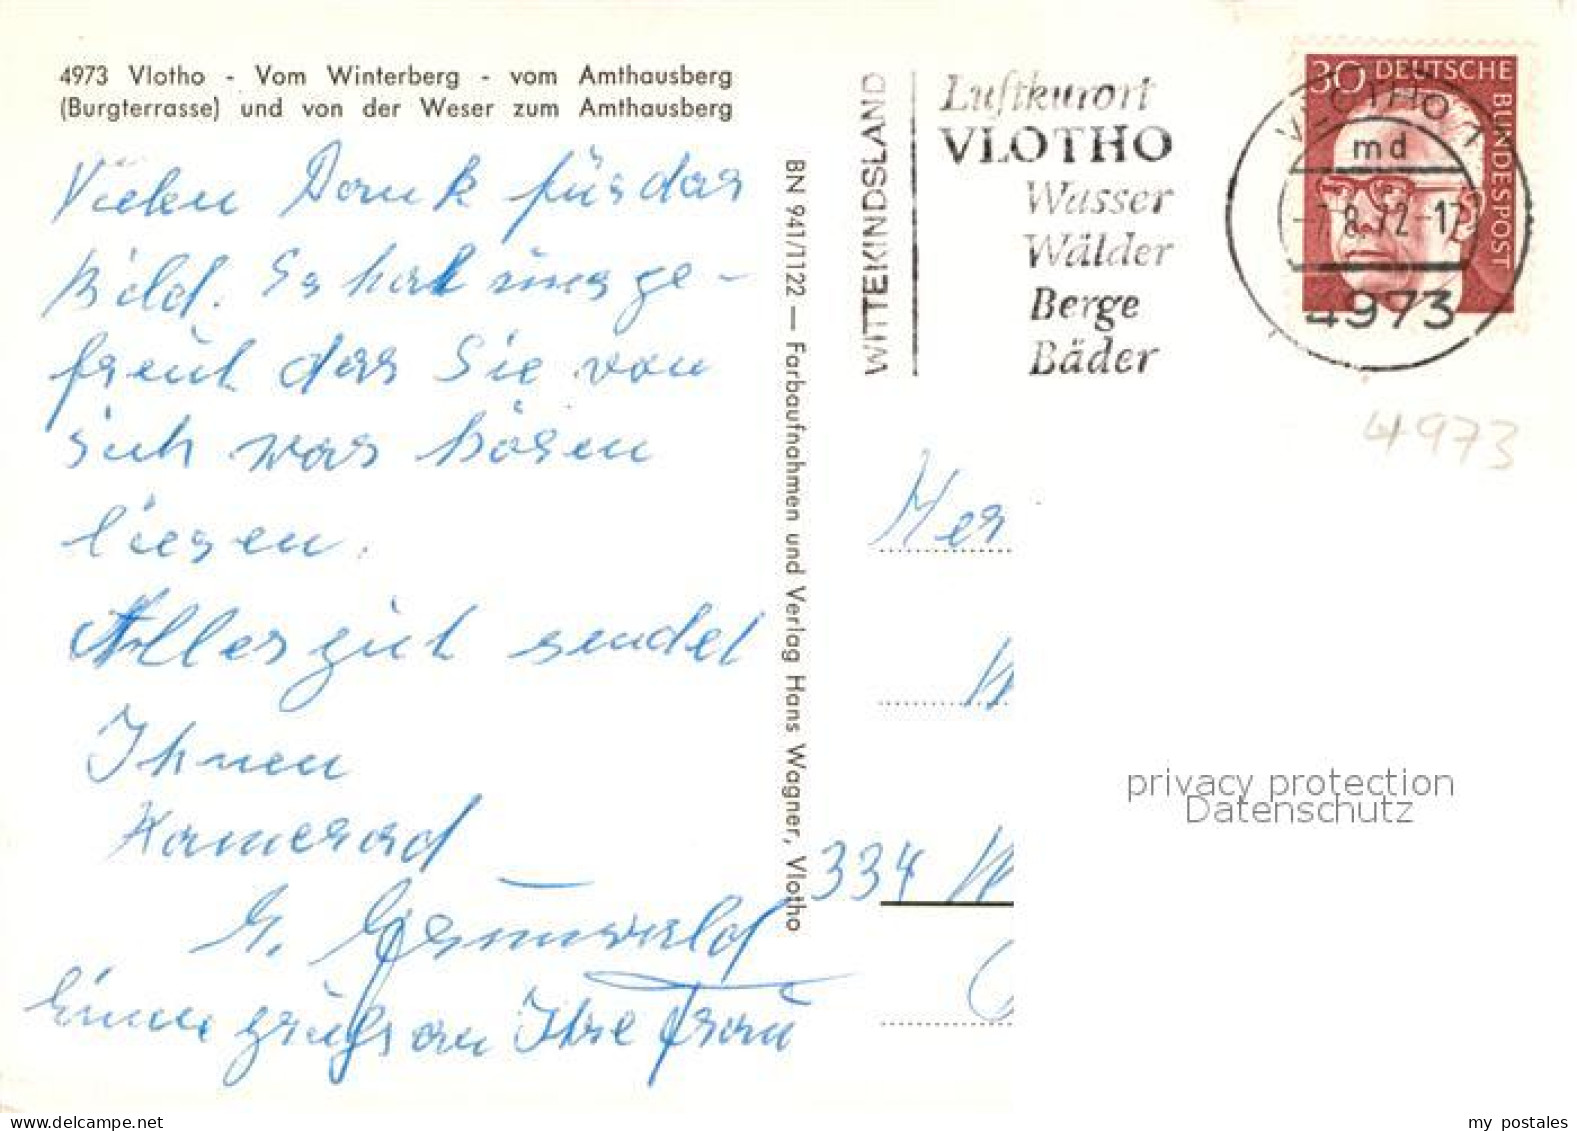 4973 Vlotho - Vom Winterberg - vom Amthausberg
(Burgterrasse) und von der Weser zum Amthausberg
Vielen Dank für das
Bild. Es hat uns ge-
freut das Sie von
sich was hören
liesen.
Alles gut sendet
Ihnen
Kamerad
G. Grunwald
Einen gruß an Ihre Frau
BN 941/1122 — Farbaufnahmen und Verlag Hans Wagner, Vlotho
WITTEKINDSLAND
Luftkurort
VLOTHO
Wasser
Wälder
Berge
Bäder
30 DEUTSCHE
BUNDESPOST
VLOTHO 1
md
-7.8.72-17
4973
4973
Her
334 W
privacy protection
Datenschutz
my postales